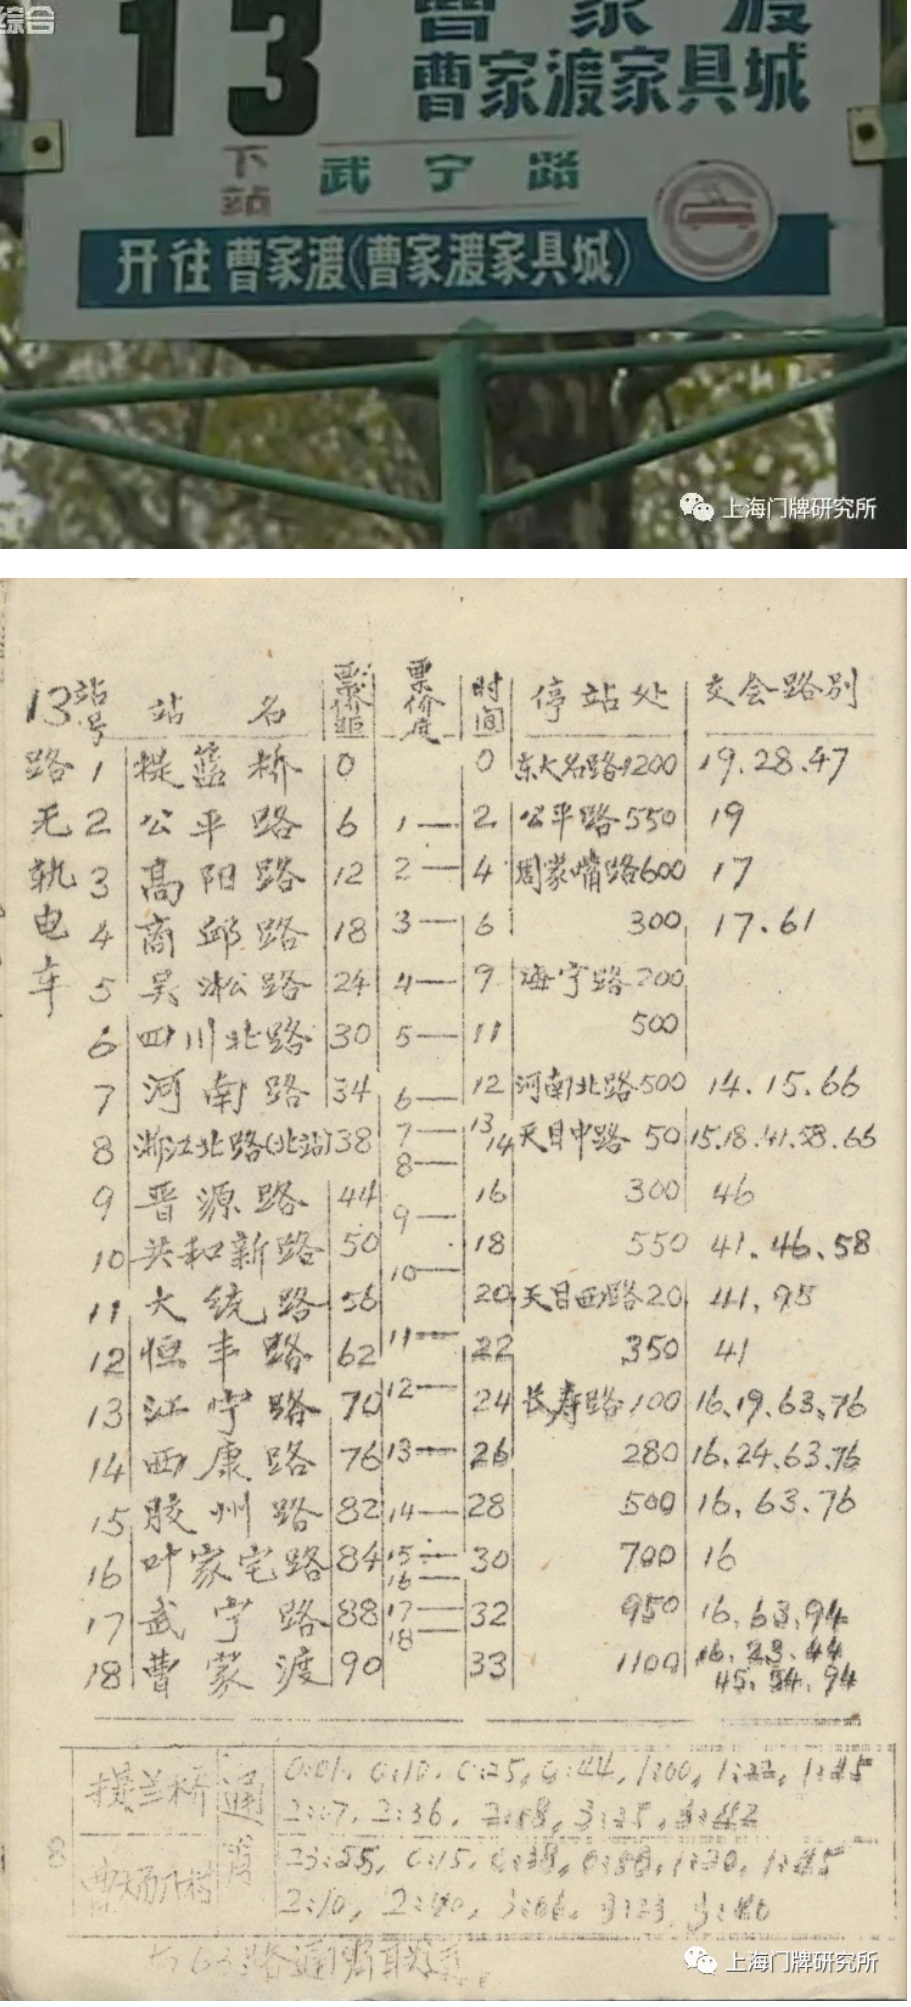 综合
13 曹家渡
曹家渡家具城
下站 武宁路
开往曹家渡(曹家渡家具城)
上海门牌研究所
13路无轨电车
站号 站名 票价距 票价度 时间 停站处 交会路别
1 提篮桥 0 0 东大名路1200 19.28.47
2 公平路 6 1— 2 公平路550 19
3 高阳路 12 2— 4 周家嘴路600 17
4 商邱路 18 3— 6 300 17.61
5 吴淞路 24 4— 9 海宁路200
6 四川北路 30 5— 11 500
7 河南路 34 6— 12 河南北路500 14.15.66
8 浙江北路(北站) 38 7— 8— 13 14 天目中路 50 15.18.41.58.66
9 晋源路 44 9— 16 300 46
10 共和新路 50 10— 18 550 41.46.58
11 大统路 56 20 天目西路20 41,95
12 恒丰路 62 11— 22 350 41
13 江宁路 70 12— 24 长寿路100 16.19.63.76
14 西康路 76 13— 26 280 16.24.63.76
15 胶州路 82 14— 28 500 16,63.76
16 叶家宅路 84 15— 16— 30 700 16
17 武宁路 88 17— 18— 32 950 16.63.94
18 曹家渡 90 33 1100 16.23.44
45.54.94
提兰桥 通宵 0:01, 0:10, 0:25, 0:44, 1:00, 1:22, 1:45
2:07, 2:36, 3:25, 3:42
23:55, 0:15, 0:38, 1:20, 1:45
2:10, 2:40, 3:06, 3:23, 3:40
63路通宵
上海门牌研究所